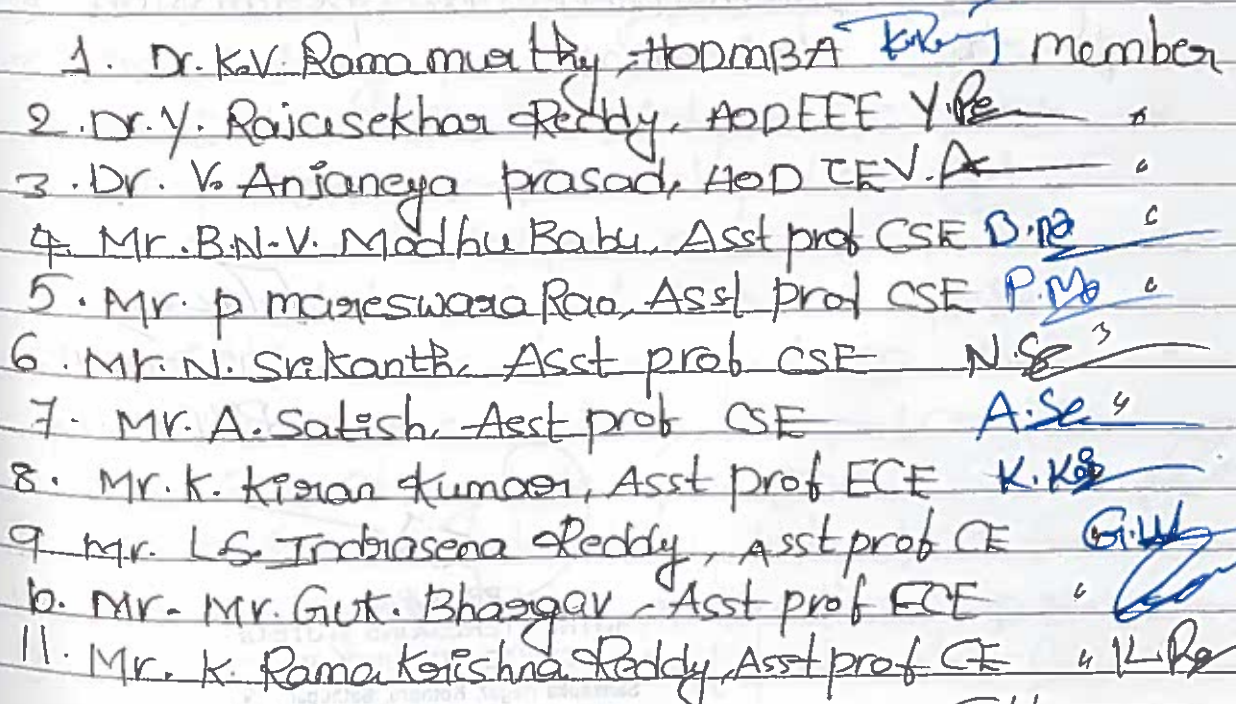 1. Dr. K.V. Ramamurthy, HOD MBA member
2. Dr. Y. Rajasekhar Reddy, HOD EEE Y.Re "
3. Dr. V. Anjaneya prasad, HOD CE V.A "
4. Mr. B.N.V. Madhu Babu, Asst prof CSE "
5. Mr. p mareswara Rao, Asst prof CSE P.Ma "
6. Mr. N. Srikanth, Asst prof CSE N.Se
7. Mr. A. Satish, Asst prof CSE A.Se "
8. Mr. K. Kiran Kumar, Asst prof ECE
9 Mr. L.S. Indrasena Reddy, Asst prof CE
10. Mr. Mr. G.V.K. Bhargav, Asst prof ECE "
11. Mr. K. Rama Krishna Reddy, Asst prof CE " K.Re